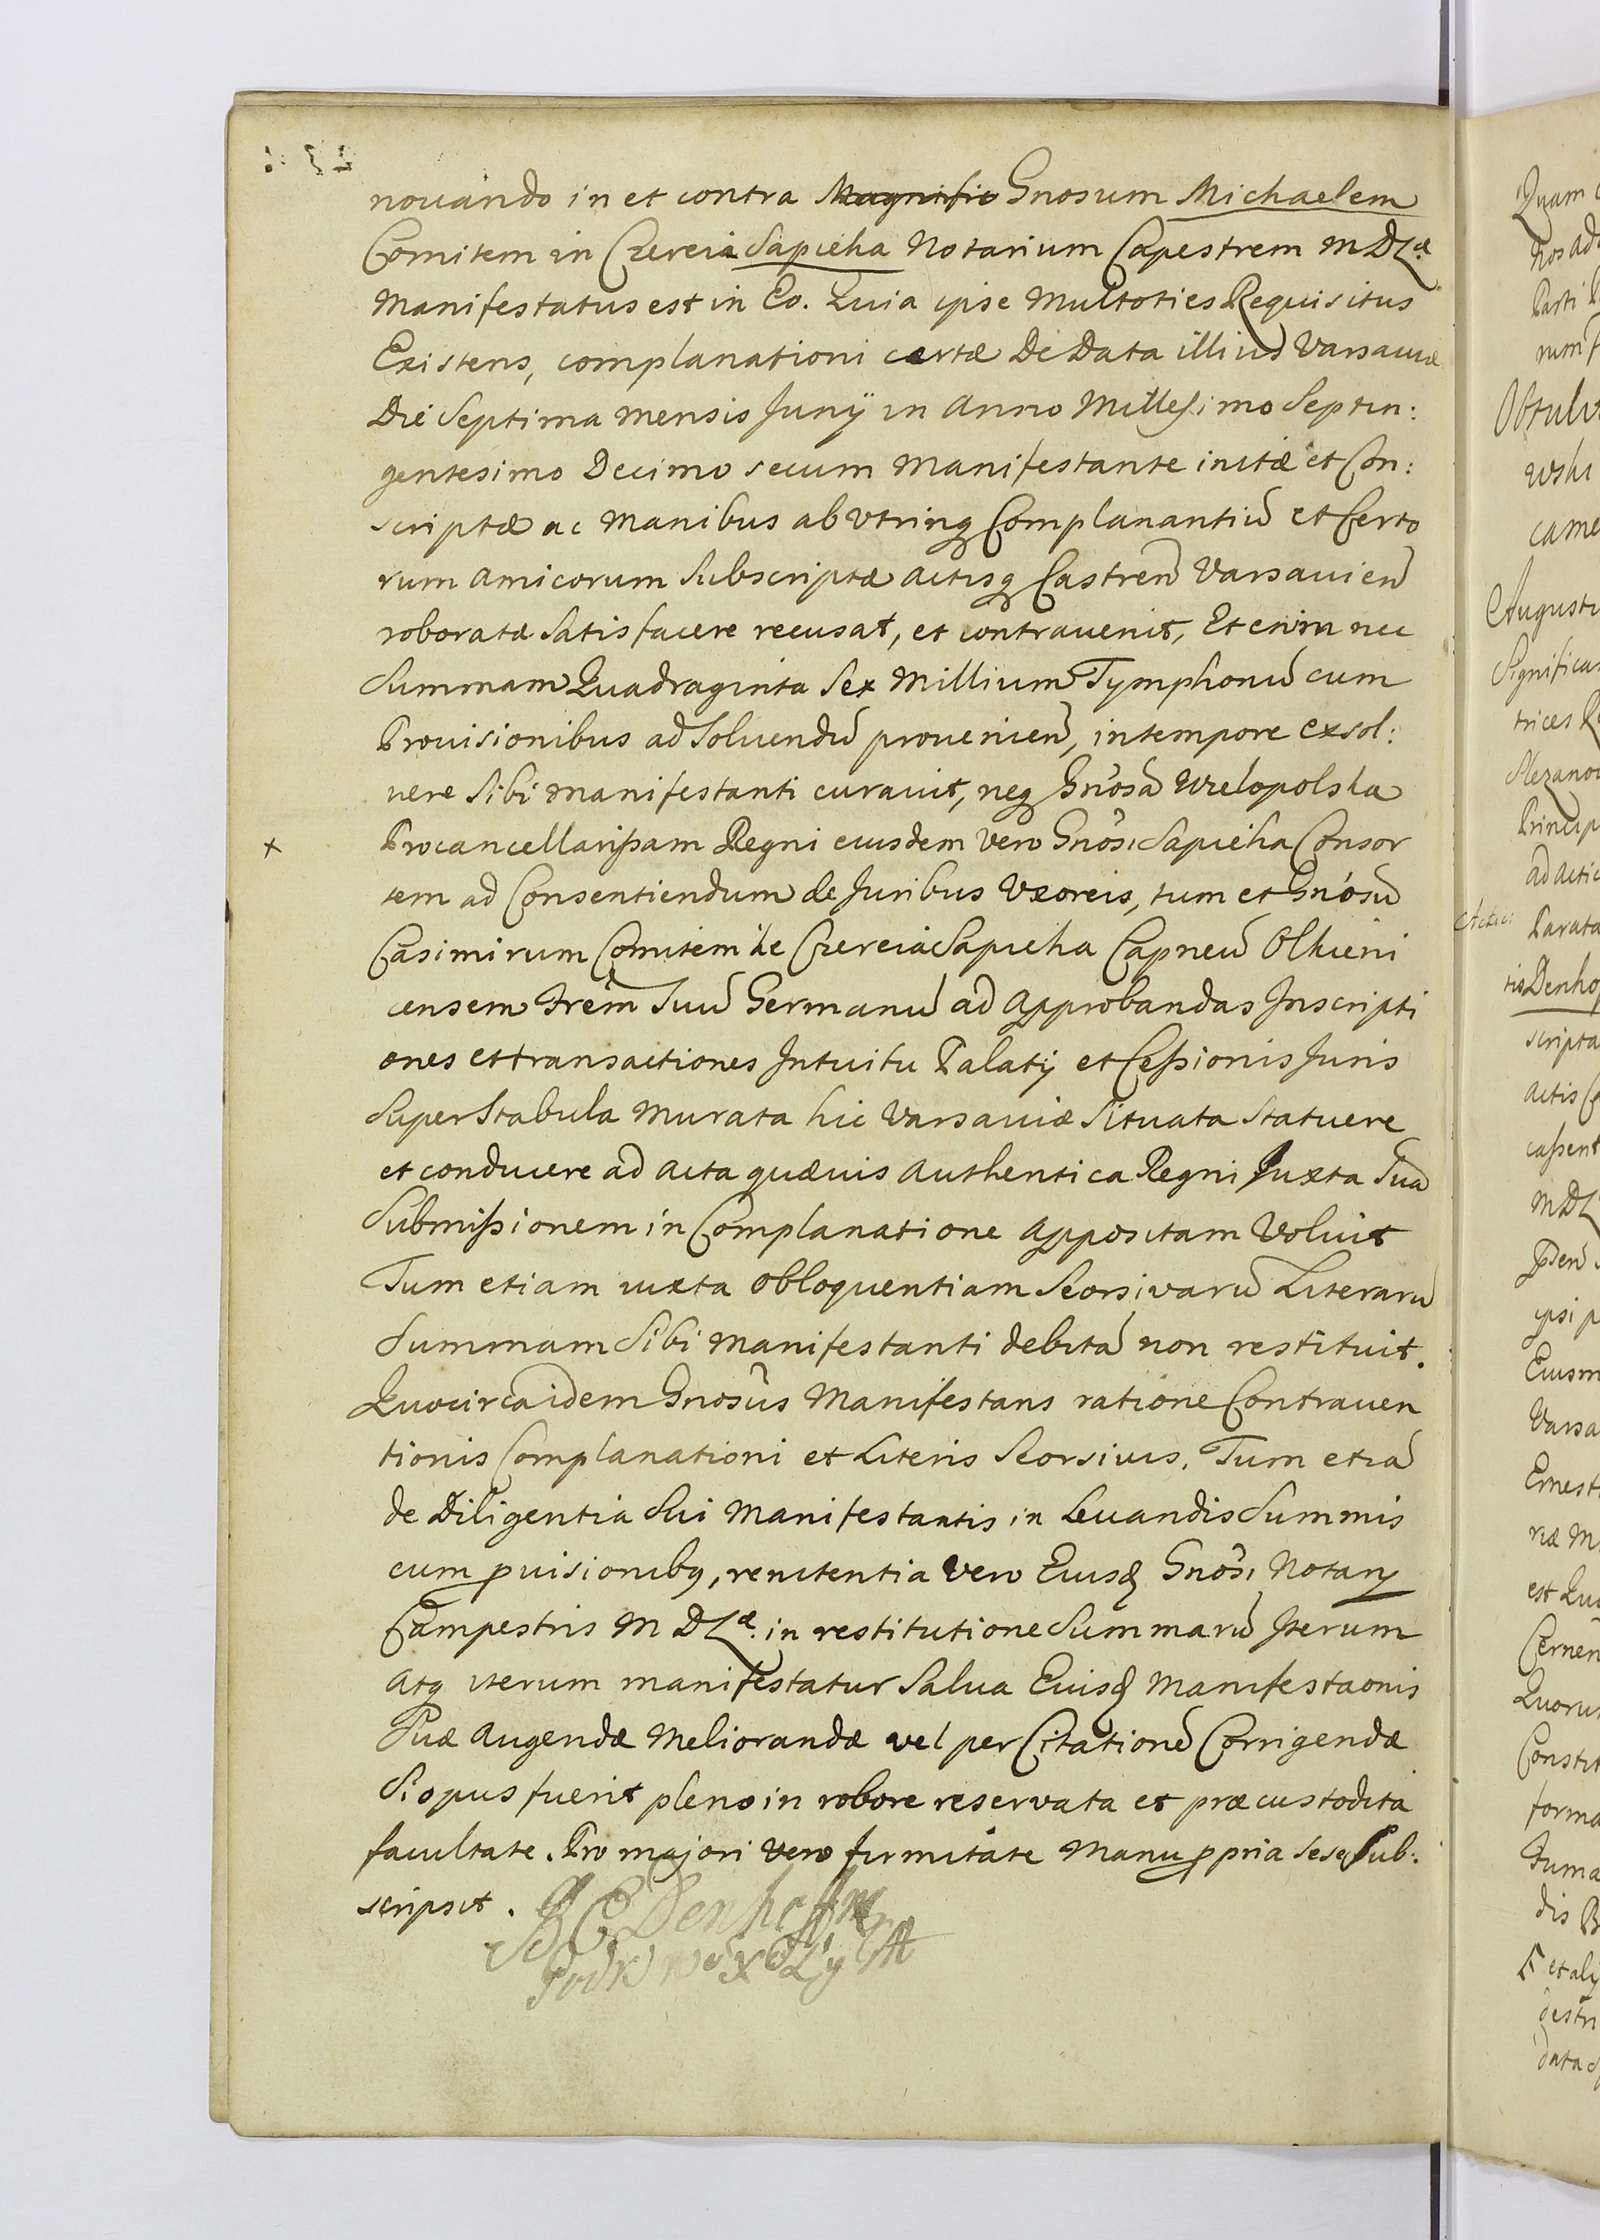 nouando in et contra Magnific Gnosum Michaelem
Comitem in Czereia Sapieha Notarium Capestrem M D Læ
Manifestatus est in Eo. Quia ipse Multoties Requisitus
Existens, complanationi certæ De Data illius Varsauiæ
Die Septima mensis Junÿ in Anno Millesimo Septin:
gentesimo Decimo secum Manifestante initæ et Con:
scriptæ ac Manibus ab vtrinq Complanantiũ et Certo
rum Amicorum Subscriptæ Actisq Castreñ Varsauieñ
roboratæ Satisfacere recusat, et contrauenit, Etenim nec
Summam Quadraginta Sex Millium Tymphonũ cum
Prouisionibus ad Soluendũ prouenieñ, in tempore exsol:
uere Sibi manifestanti curauit, neq Gnosã Wielopolska
× Procancellarißam Regni eiusdem vero Gnosi Sapieha Consor
tem ad Consentiendum de Juribus Vxoreis, tum et Gnosũ
Casimirum Comitem de Czereia Sapieha Capneũ Olkieni
censem frem Suũ Germanũ ad Approbandas Inscripti
ones et transactiones Intuitu Palatij et Ceßionis Juris
Super Stabula Murata hic Varsauiæ Situata Statuere
et conducere ad Acta quævis Authentica Regni Juxta Suã
Submißionem in Complanatione Appositam Voluit
Tum etiam iuxta Obloquentiam Seorsivarũ Literarũ
Summam Sibi Manifestanti debitã non restituit.
Quocirca idem Gnosus Manifestans ratione Contrauen
tionis Complanationi et Literis Seorsiuis. Tum etiã
de Diligentia Sui Manifestantis in Leuandis Summis
cum puisionibq, renitentia vero Eiusd Gnosi Notary
Campestris M D Læ: in restitutione Summarũ Iterum
Atq iterum manifestatur Salua Eiusd Manifestaonis
Suæ Augendæ Meliorandæ vel per Citationẽ Corrigendæ
Si opus fuerit pleno in robore reservata et præcustodita
facultate. Pro majori vero firmitate Manu ppria sese Sub:
scripsit. Denhoff